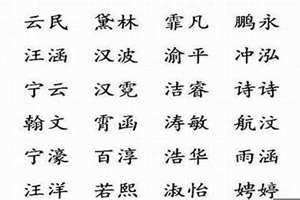 云民 黛林 霏凡 鹏永
汪涵 汉波 渝平 冲泓
宁云 汉霓 洁睿 诗诗
翰文 霄函 涛敏 航汶
宁濠 百淳 浩华 雨涵
汪洋 若熙 淑怡 娉婷